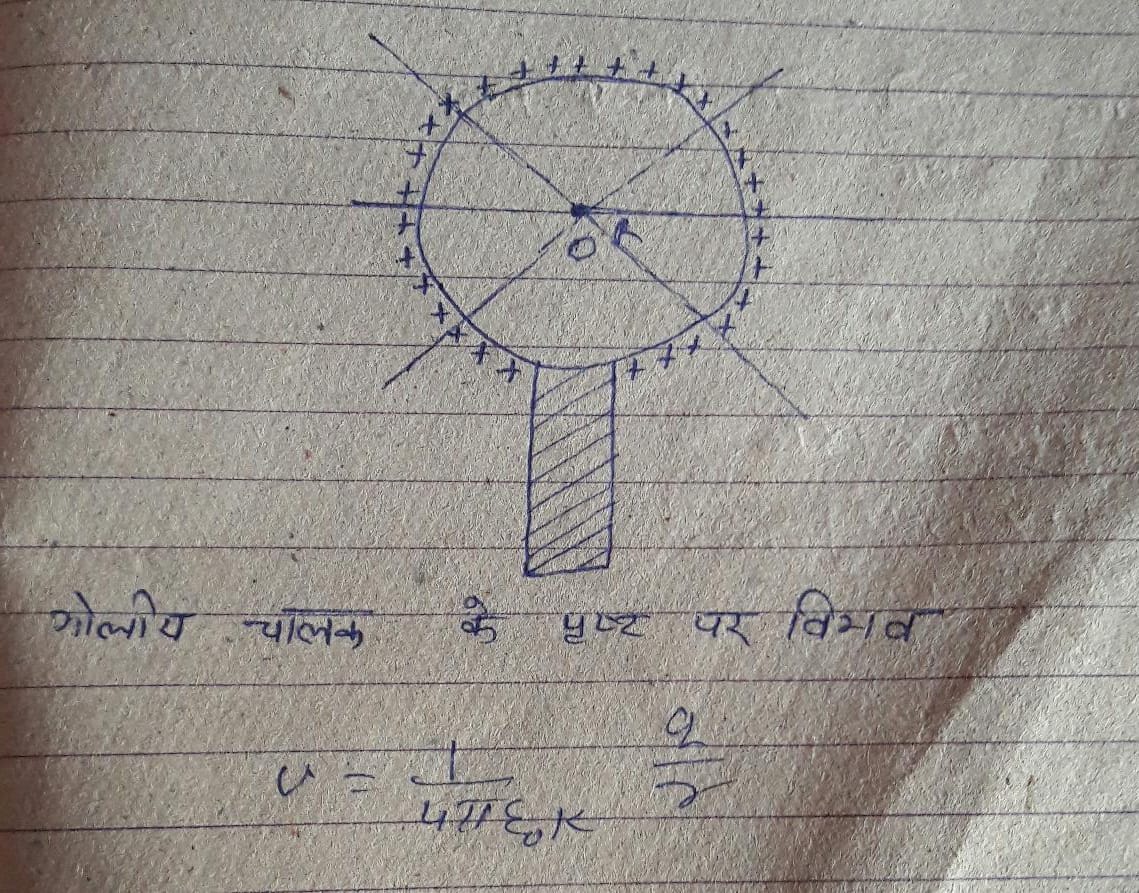 O K
गोलीय चालक के पृष्ट पर विभव
v = 1/4πε₀K q/r